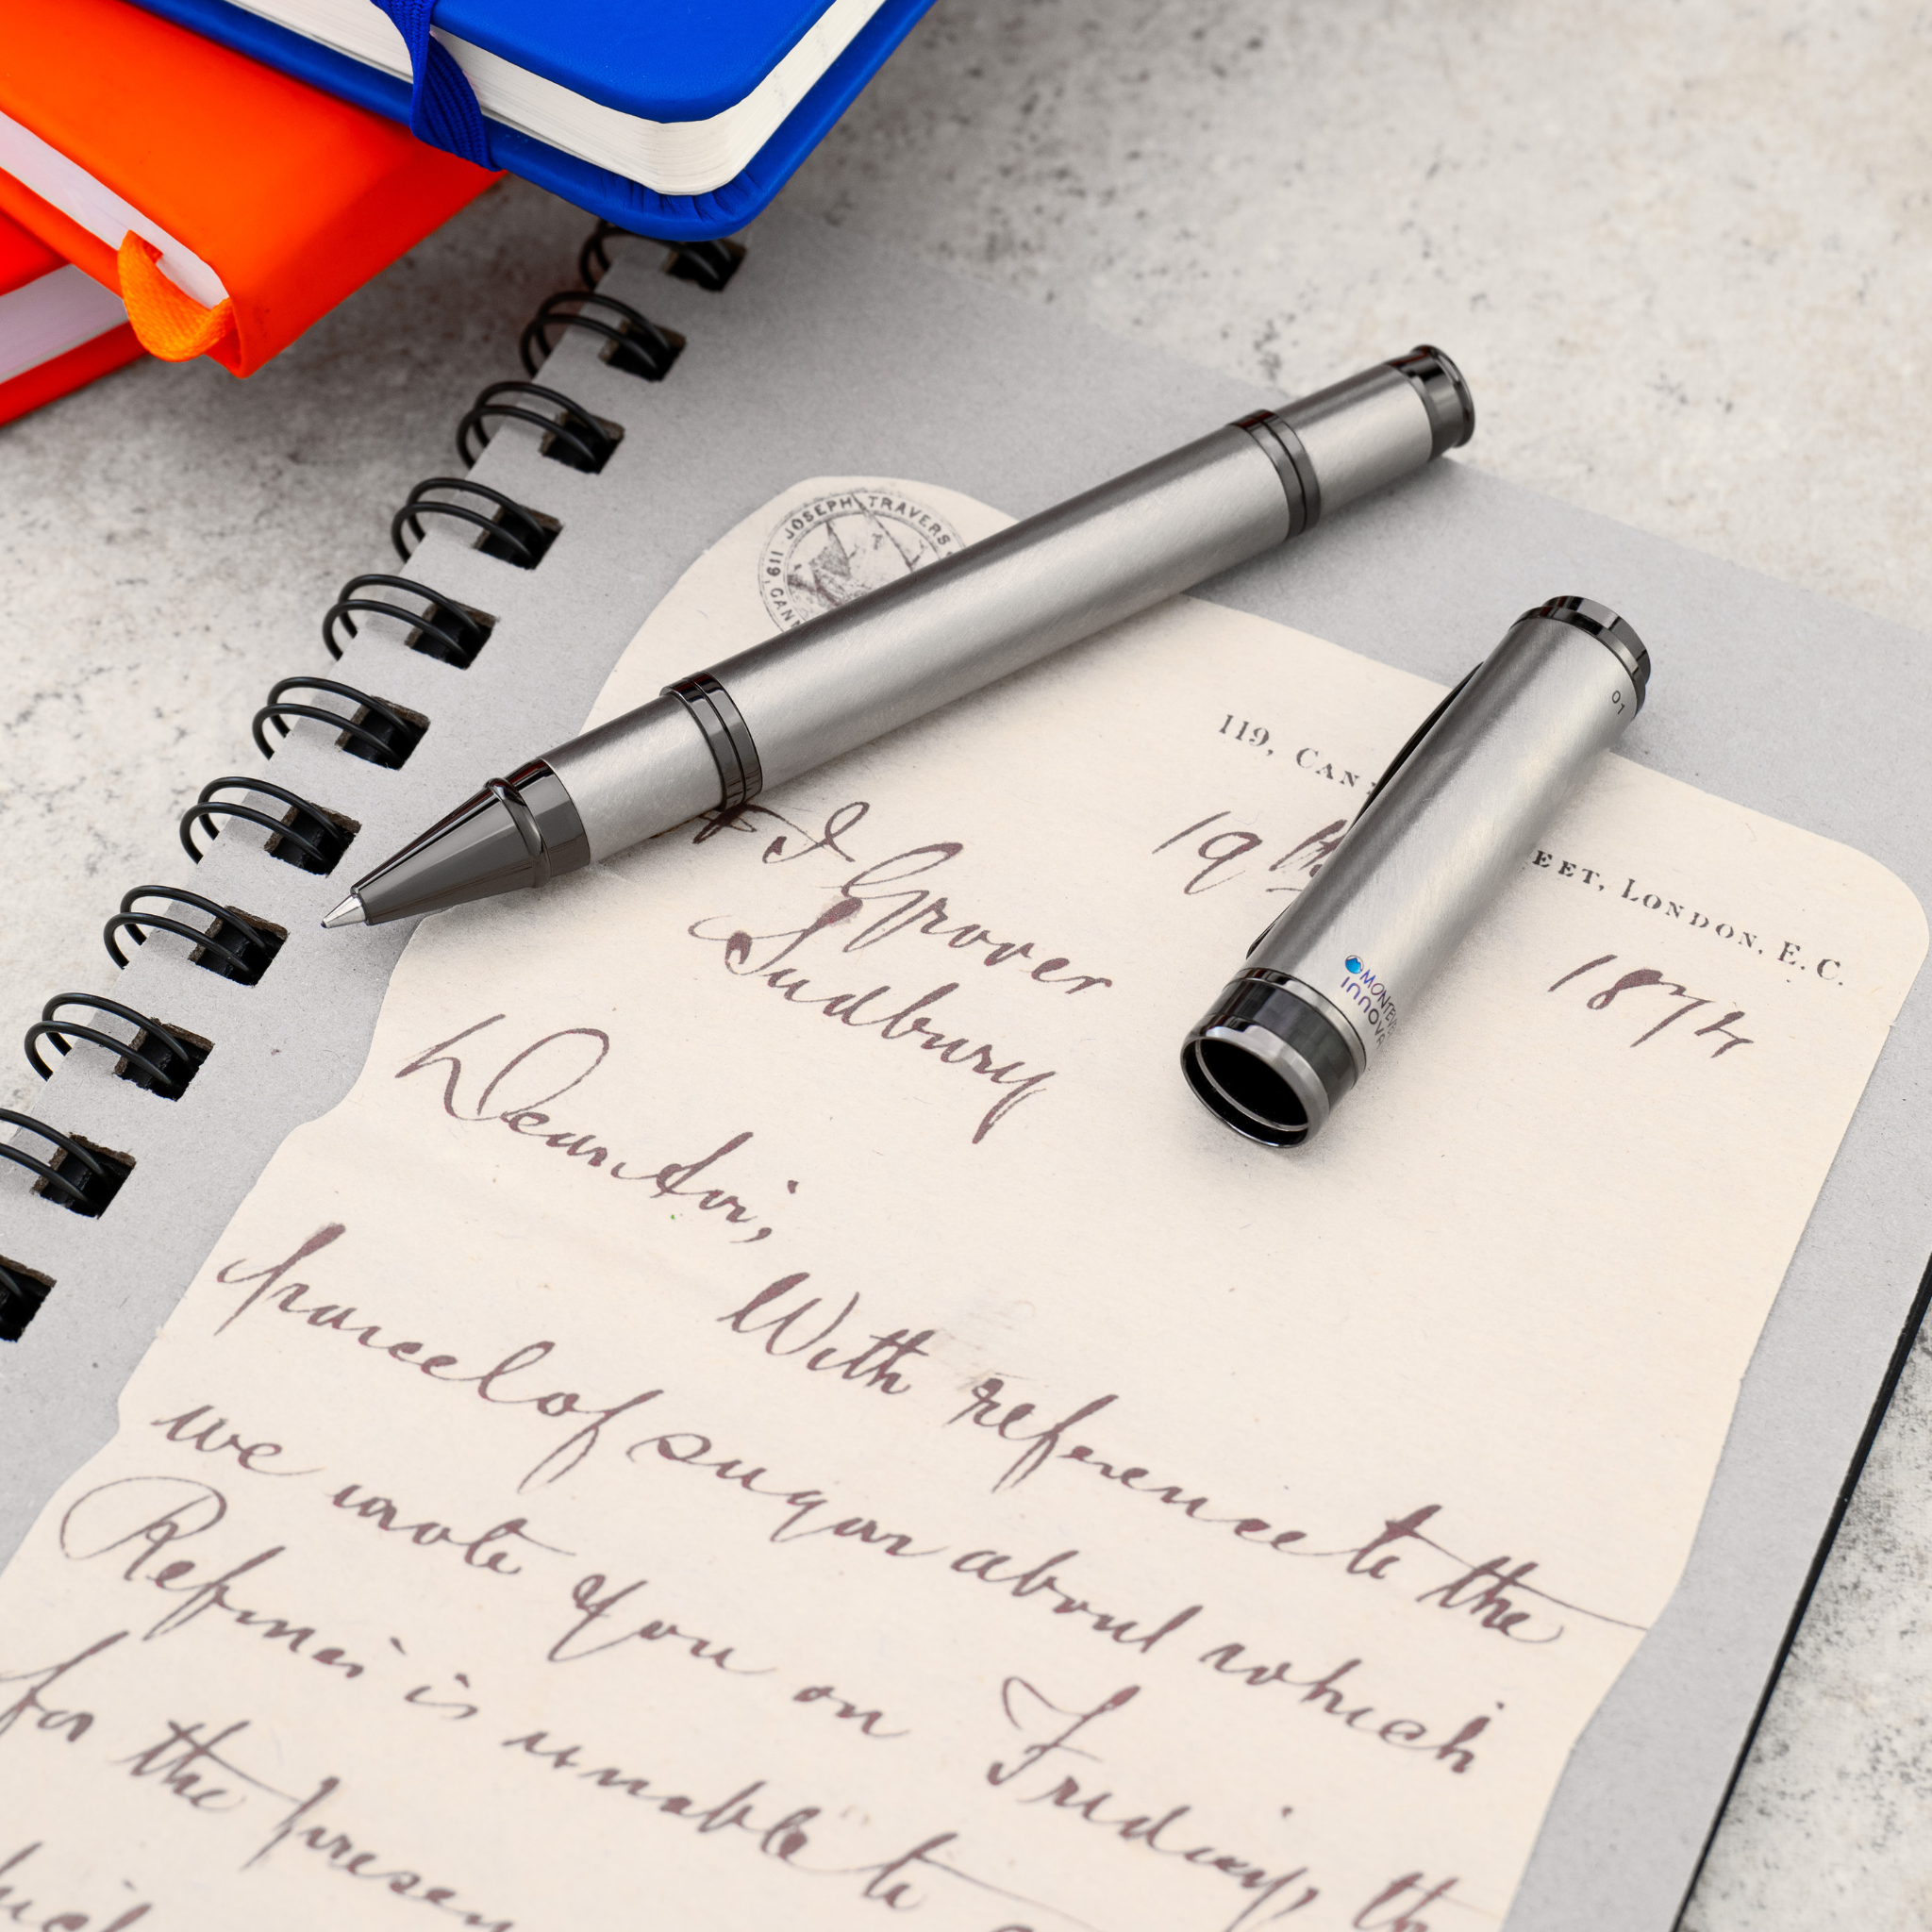 JOSEPH TRAVERS
119, CAN
119, CAN EET, LONDON, E.C.
19th 1874
I Grover
Sudbury
Dear Sir,
With reference to the
parcel of sugar about which
we wrote you on Friday, th
Refiner is unable to
for the presen
01
MONTEV
INNOVA